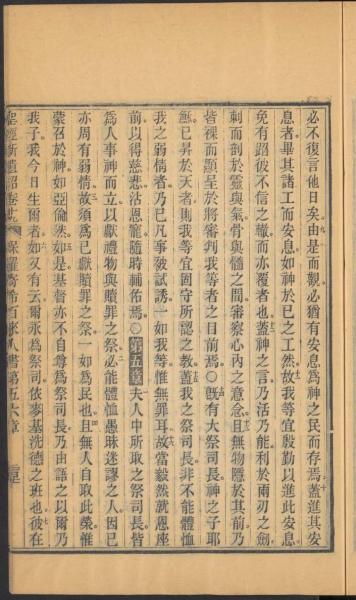 必不復言他日矣由是而觀必猶有安息為神之民而存焉蓋進其安
息者畢其諸工而安息如神於己之工然故我等宜殷勤以進此安息
免有蹈彼不信之轍而亦覆者也蓋神之言乃活乃能利於兩刃之劍
刺而剖於靈與氣骨與髓之間審察心內之意念且無物隱於其前乃
皆裸而顯呈於將審判我等者之目前焉〇既有大祭司長神之子耶
穌已昇於天者則我等宜固守所認之教蓋我之祭司長非不能體恤
我之弱情者乃已凡事被試誘一如我等惟無罪耳故當毅然就恩座
前以得慈悲沾恩寵隨時輔佑焉〇第五章夫人中所取之祭司長皆
為人事神而立以獻禮物與贖罪之祭必能體恤愚昧迷謬之人因己
亦周有弱情故須為己獻贖罪之祭一如為民也且無人自取此榮惟
蒙召於神如亞倫然如是基督亦不自尊為祭司長乃由語之以爾乃
我子我今日生爾者如又有云爾永為祭司依麥基洗德之班也彼在
聖經新遺詔 保羅寄希百耒人書第五六章